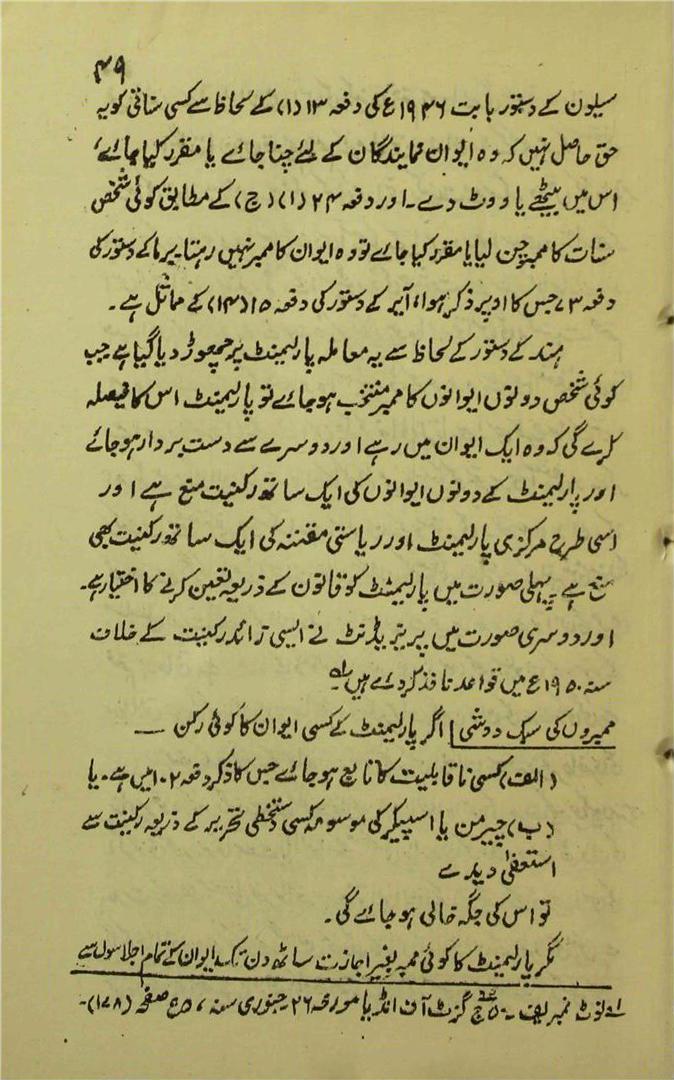 ۴۹
سیلون کے دستور بابت ۱۹۴۶ع کی دفعہ ۱۳ (۱) کے لحاظ سے کسی سناتی کو یہ
حق حاصل نہیں کہ وہ ایوان نمایندگان کے لئے چنا جاے یا مقرر کیا جاے،
اس میں بیٹھے یا ووٹ دے۔ اور دفعہ ۲۴ (۱) (ج) کے مطابق کوئی شخص
سنات کا ممبر چن لیا یا مقرر کیا جاے تو وہ ایوان کا ممبر نہیں رہتا۔ برما کے دستور کی
دفعہ ۷۳ جس کا اوپر ذکر ہوا، آیر کے دستور کی دفعہ ۱۵ (۱۴) کے مماثل ہے۔
ہند کے دستور کے لحاظ سے یہ معاملہ پارلیمنٹ پر چھوڑ دیا گیا ہے جب
کوئی شخص دونوں ایوانوں کا ممبر منتخب ہو جاے تو پارلیمنٹ اس کا فیصلہ
کرے گی کہ وہ ایک ایوان میں رہے اور دوسرے سے دست بردار ہو جائے
اور پارلیمنٹ کے دونوں ایوانوں کی ایک ساتھ رکنیت منع ہے اور
اسی طرح مرکزی پارلیمنٹ اور ریاستی مقننہ کی ایک ساتھ رکنیت بھی
منع ہے۔ پہلی صورت میں پارلیمنٹ کو قانون کے ذریعہ تعین کرنے کا اختیار ہے۔
اور دوسری صورت میں پریزیڈنٹ نے ایسی زائد رکنیت کے خلاف
سنہ ۱۹۵۰ع میں قواعد نافذ کر دے ہیں۔ لہ
ممبروں کی سبک دوشی | اگر پارلیمنٹ کے کسی ایوان کا کوئی رکن —
(الف) کسی ناقابلیت کا تابع ہو جاے جس کا ذکر دفعہ ۱۰۲ میں ہے۔ یا
(ب) چیرمن یا اسپیکر کی موسومہ کسی دستخطی تحریر کے ذریعہ رکنیت سے
استعفیٰ دیدے
تو اس کی جگہ خالی ہو جاے گی۔
اگر پارلیمنٹ کا کوئی ممبر بغیر اجازت ساٹھ دن تک ایوان کے تمام اجلاسوں سے
لہ نوٹ نمبر یف۔ گزٹ آف انڈیا مورخہ ۲۶۔ جنوری سنہ صفحہ (۱۷۸)۔